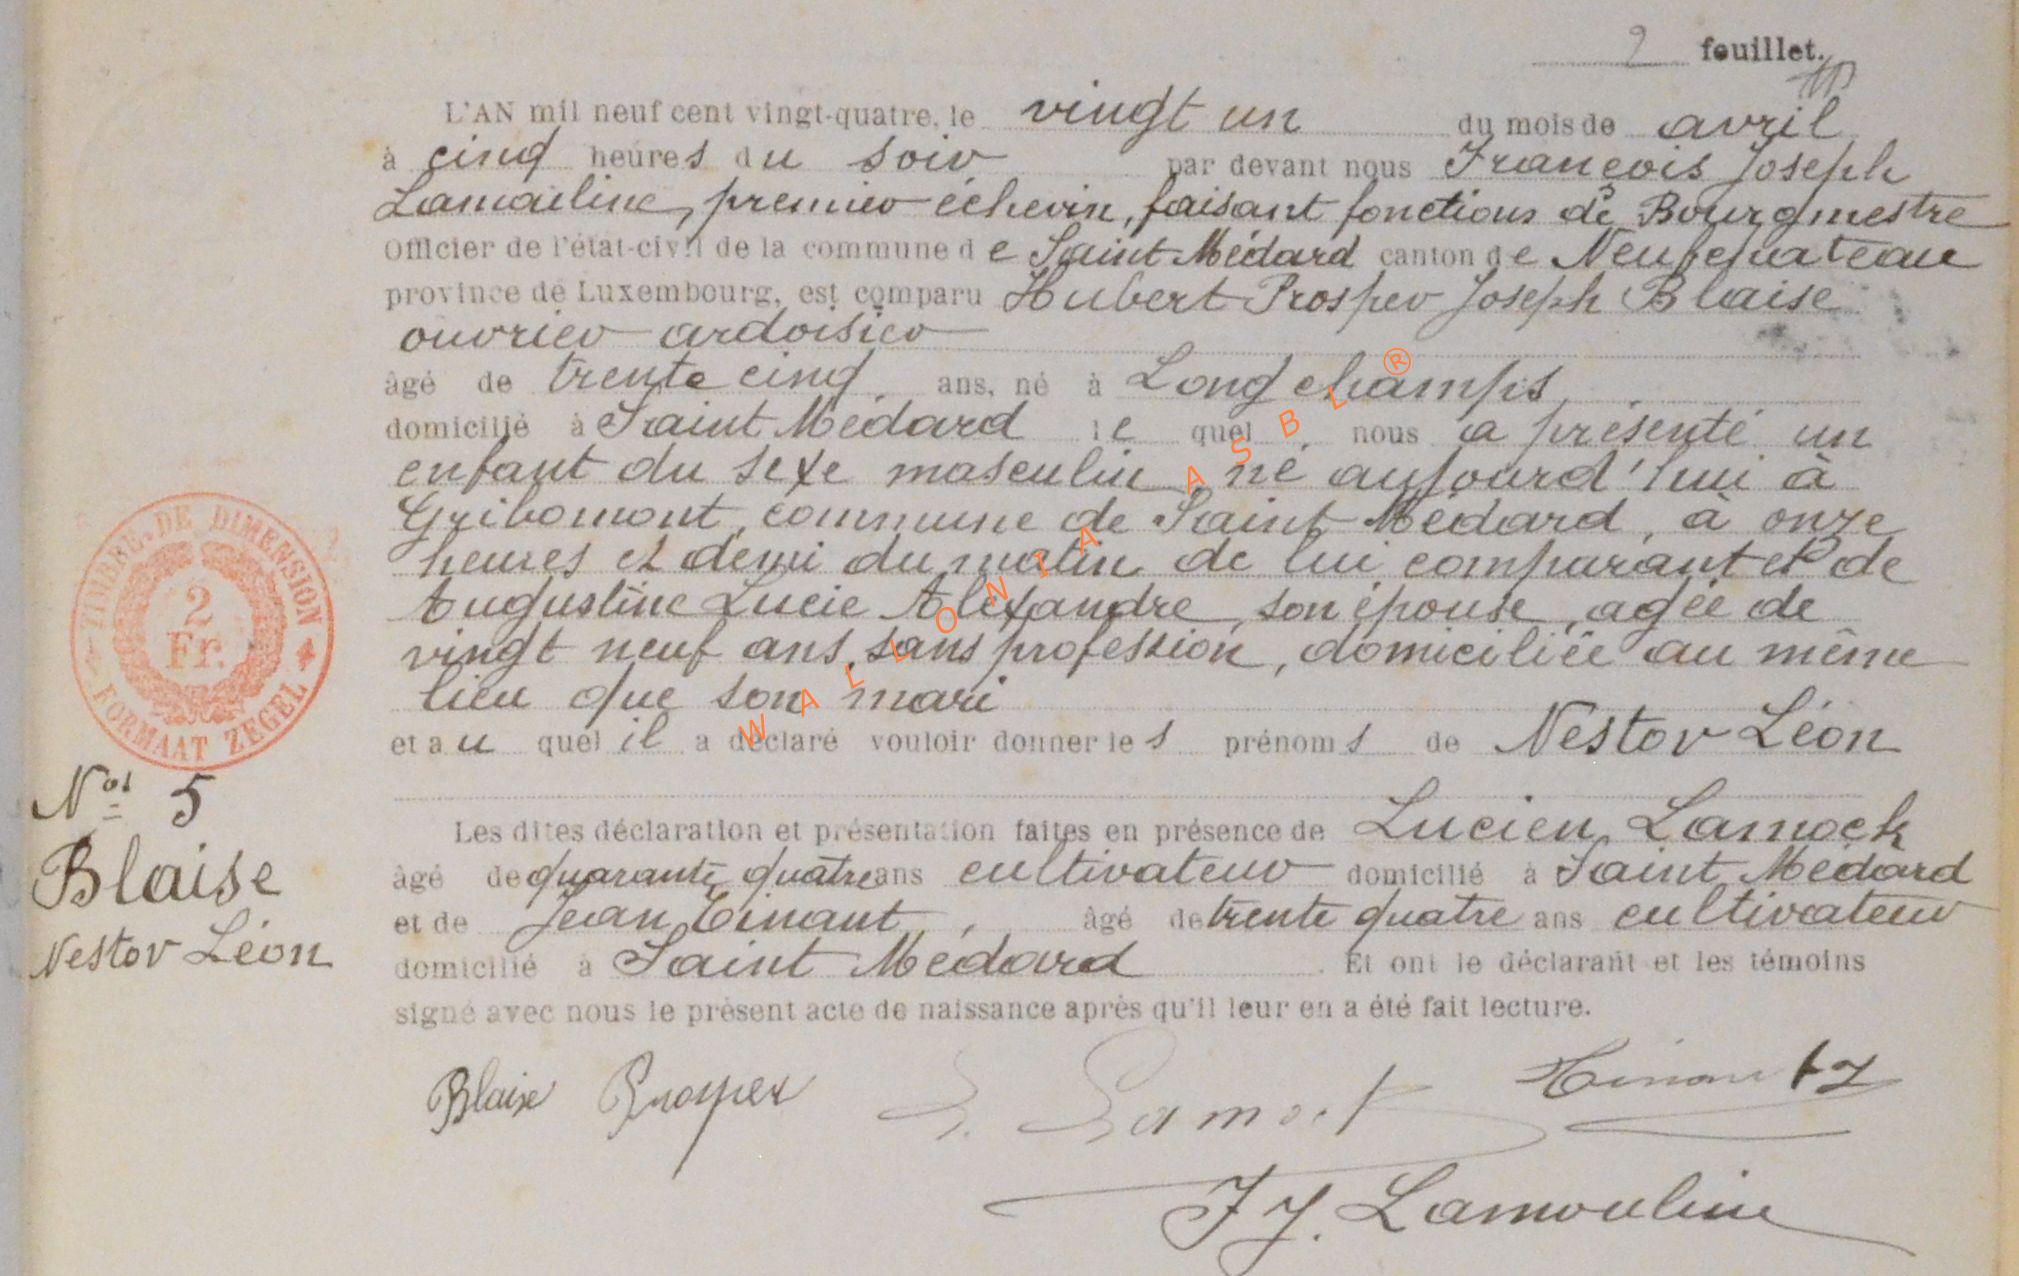 2 feuillet.
L'AN mil neuf cent vingt-quatre, le vingt un du mois de avril
à cinq heures du soir par devant nous François Joseph
Lamouline, premier échevin, faisant fonctions de Bourgmestre
Officier de l'état-civil de la commune de Saint Médard canton de Neufchateau
province de Luxembourg, est comparu Hubert Prosper Joseph Blaise
ouvrier ardoisier
âgé de trente cinq ans, né à Longchamps
domicilié à Saint Médard lequel nous a présenté un
enfant du sexe masculin, né aujourd'hui à
Gribomont, commune de Saint Médard, à onze
heures et demi du matin de lui comparant et de
Augustine Lucie Alexandre, son épouse, agée de
vingt neuf ans, sans profession, domiciliée au même
lieu que son mari
et auquel il a déclaré vouloir donner les prénoms de Nestor Léon
TIMBRE DE DIMENSION
2
Fr.
FORMAAT ZEGEL
Nos 5
Blaise
Nestor Léon
Les dites déclaration et présentation faites en présence de Lucien Lamock
âgé de quarante quatre ans cultivateur domicilié à Saint Médard
et de Jean Tinant, âgé de trente quatre ans cultivateur
domicilié à Saint Médard. Et ont le déclarant et les témoins
signé avec nous le présent acte de naissance après qu'il leur en a été fait lecture.
Blaise Prosper L. Lamock Tinant J
F J. Lamouline
WALLONIA ASBL ®